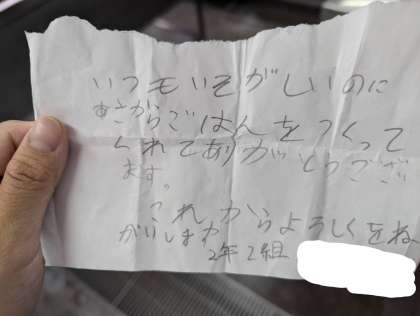 いつもいそがしいのに
あさからごはんをつくって
くれてありがとうござい
ます。
これからよろしくおね
がいします
2年2組